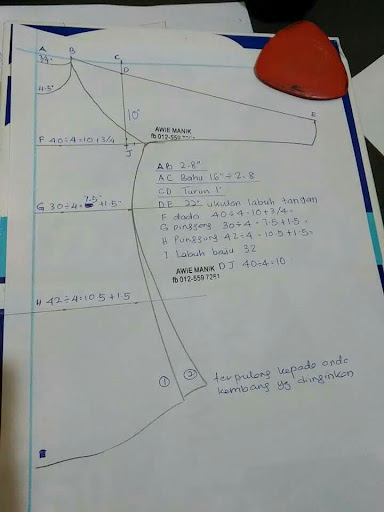 A
B
C
D
E
4.5"
10"
AWIE MANIK
fb 012-559 7251
F 40÷4=10+3/4
J
AB 2.8"
AC Bahu 16"÷2.8
CD Turun 1"
DE 22" ukuran labuh tangan
F dada 40÷4=10+3/4=
G 30÷4=7.5"+1.5"
G pinggang 30÷4=7.5+1.5=
H Punggung 42÷4=10.5+1.5=
I Labuh baju 32
AWIE MANIK
fb 012-559 7251
DJ 40÷4=10
H 42÷4=10.5+1.5
① ②
terpulang kepada anda
kembang yg diinginkan